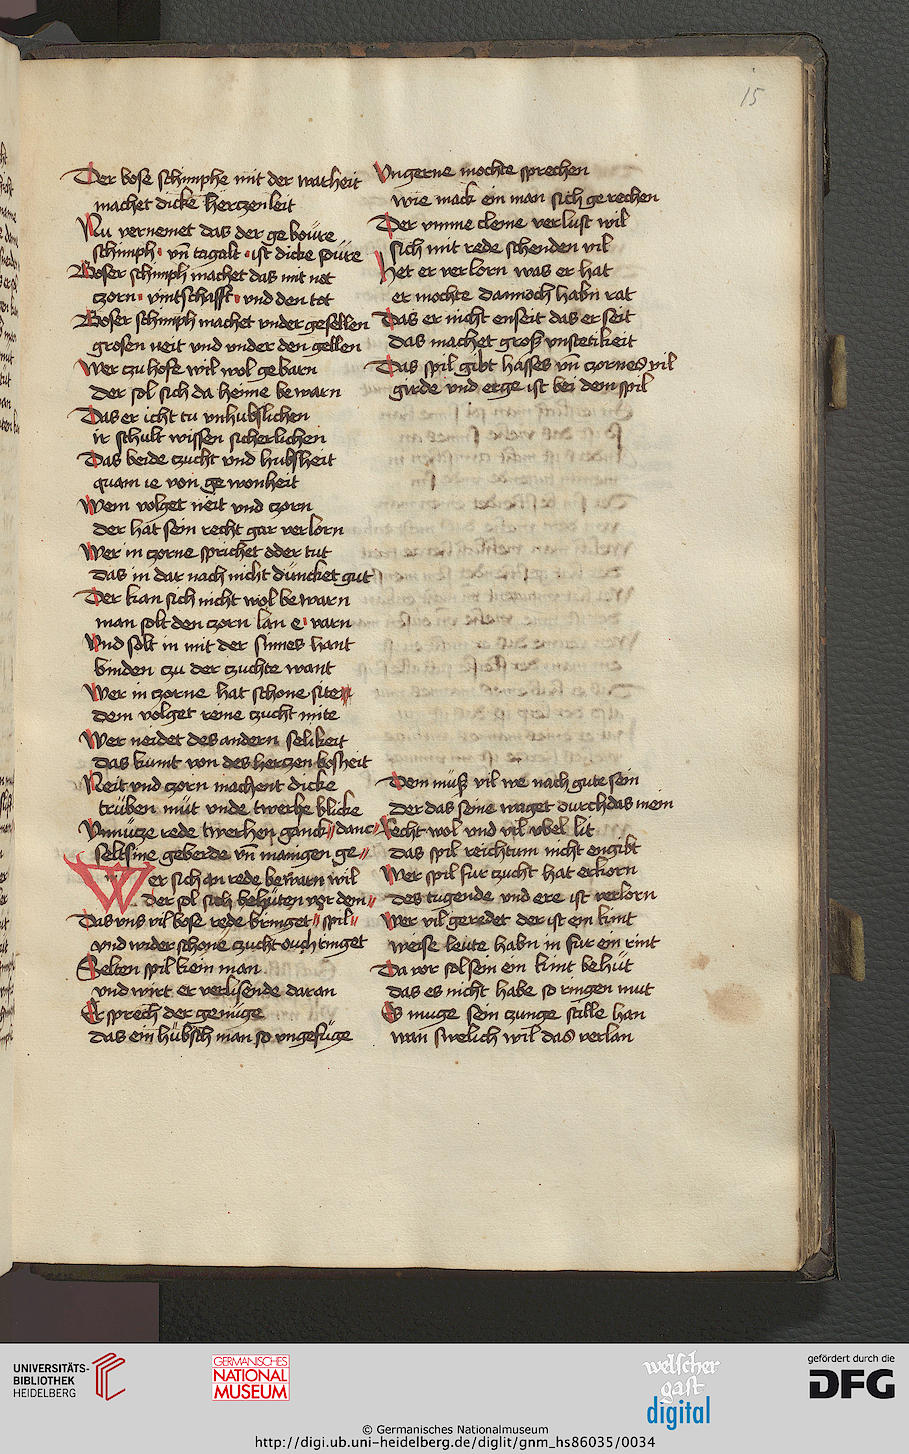 15
Der bose schimphe mit der warheit
machet dicke hertzenleit
Nu vernemet das der geboure
schimph · vn̄ tzagalt · ist dicke soure
Boser schimph machet das mit not
czorn · vintschafft · vnd den tot
Boser schimph machet vnder gesellen
grosen neit vnd vnder den gellen
Wer czu hofe wil wol gebarn
der sol sich da heime bewarn
Das er icht tu vnhubslichen
ir schult wissen sicherlichen
Das beide czucht vnd hubsheit
quam ie von gewonheit
Wem volget neit vnd czorn
der hat sein recht gar verlorn
Wer in czorne sprichet oder tut
das in dar nach nicht düncket gut
Der kan sich nicht wol bewarn
man solt den czorn lan e · varn
Vnd solt in mit der sinnes hant
binden czu der czuchte want
Wer in czorne hat schone siten
dem volget reine czucht mite
Wer neidet des andern selikeit
das kumt von des hertzen bosheit
Neit vnd czorn machent dicke
trüben müt vnde twerhe blicke
Vnnücze rede twerhen ganck danc
seltsine geberde vn̄ manigen ge
Wer sich an rede bewarn wil
der sol sich behüten vor dem
Das vns vil bose rede bringet spil
vnd wider schone czucht ouch ringet
Selten spil kein man
vnd wirt er verlisende daran
Er sprech der genüge
das ein hübsch man so vngefüge
Vngerne mochte sprechen
wie mack ein man sich gerechen
Der vmme cleine verlust wil
sich mit rede schenden vil
Het er verlorn was er hat
er mochte dannoch habn rat
Das er nicht enseit das er seit
das machet groß vnstetikeit
Das spil gibt hasses vn̄ czornes vil
girde vnd erge ist bei dem spil
Dem müß vil we nach gute sein
der das seine waget durch das mein
Recht wol vnd vil vbel lit
das spil reichtum nicht engibt
Wer spil fur czucht hat erkorn
des tugende vnd ere ist verlorn
Wer vil geredet der ist ein kint
weise leute habn in fur ein rint
Da vor sol sein ein kint behüt
das es nicht habe so ringen mut
Es muge sein czunge stille han
wan swelich wil das verlan
UNIVERSITÄTS-
BIBLIOTHEK
HEIDELBERG
GERMANISCHES
NATIONAL
MUSEUM
welscher
gast
digital
gefördert durch die
DFG
© Germanisches Nationalmuseum
http://digi.ub.uni-heidelberg.de/diglit/gnm_hs86035/0034